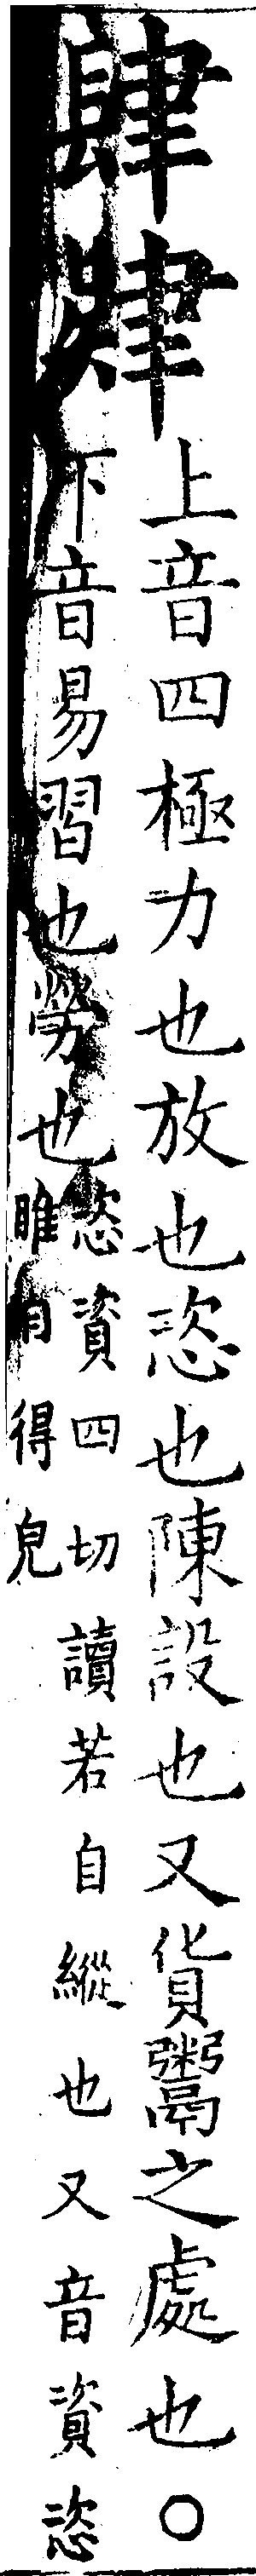 肆肄
上音四極力也放也恣也陳設也又貨鬻之處也○
下音易習也勞也
恣資四切讀若自縱也又音資恣
睢自得皃